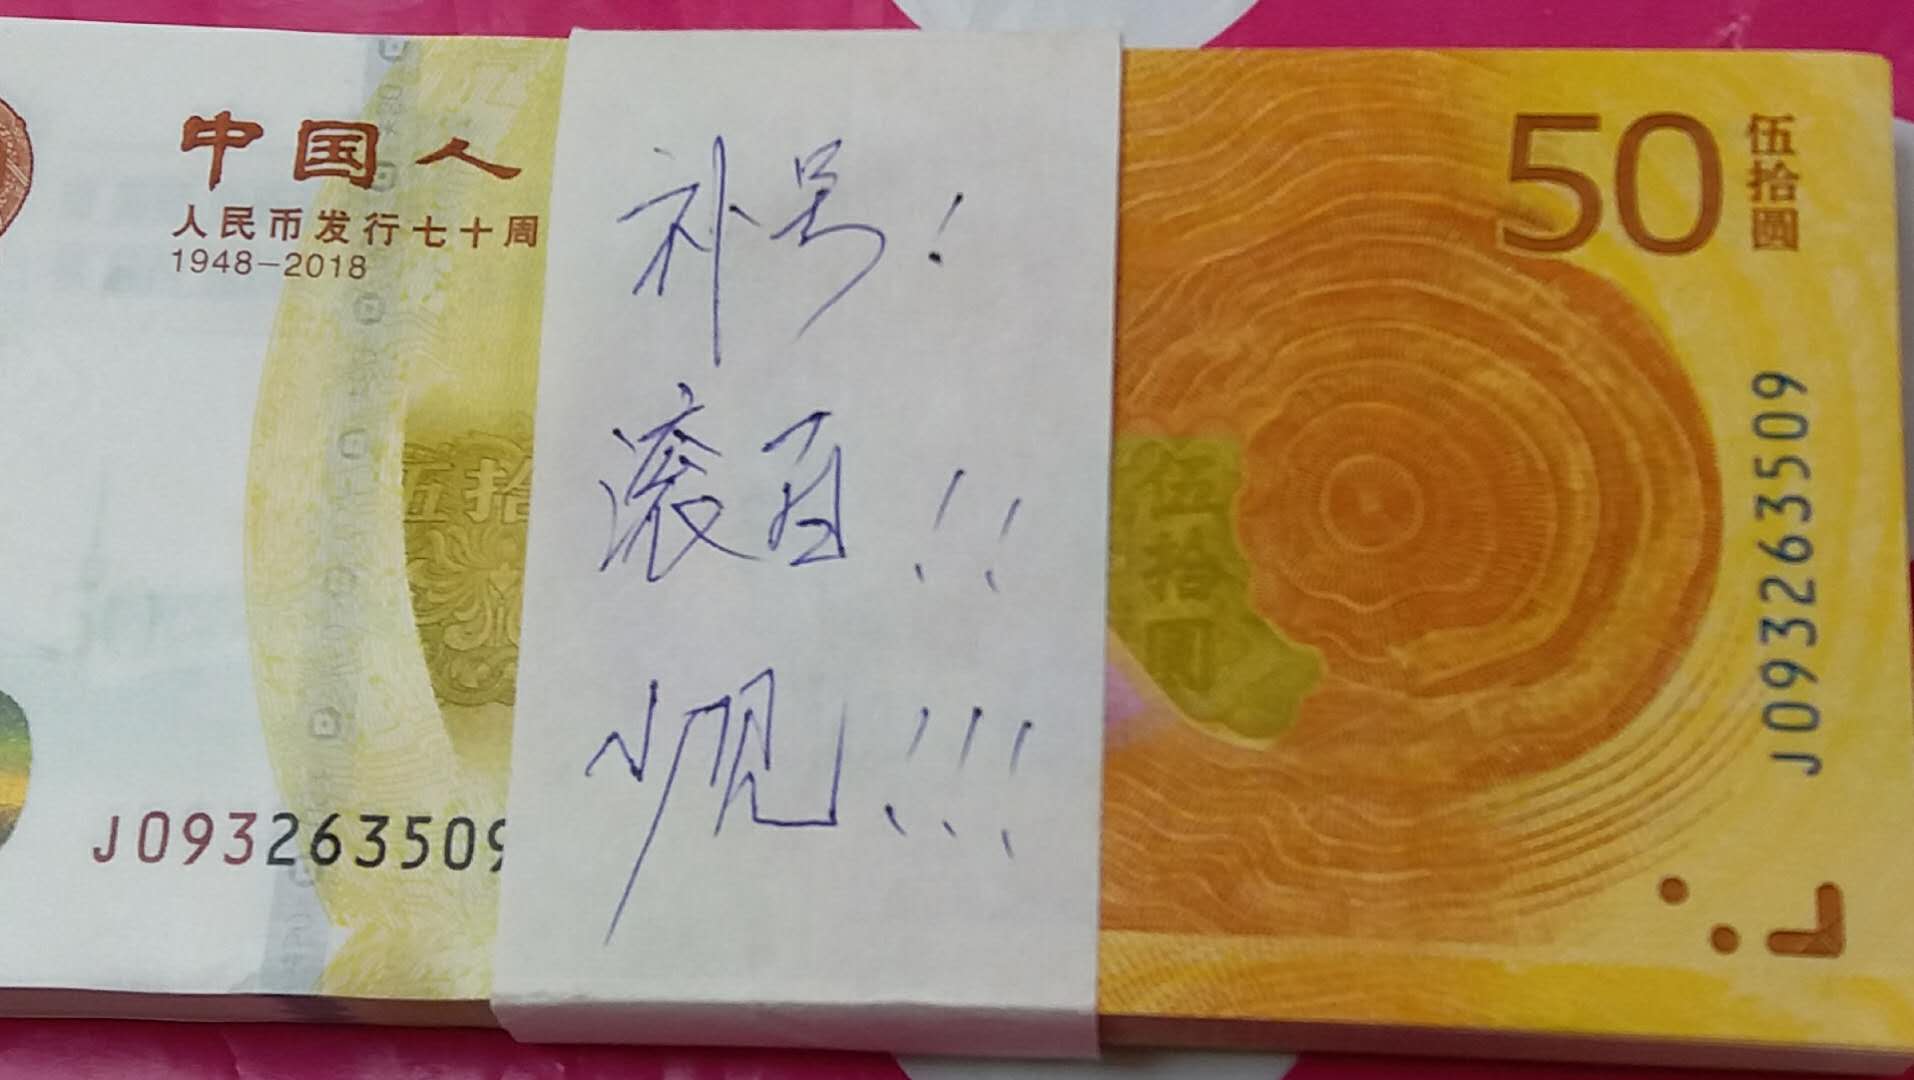 中国人
人民币发行七十周
1948-2018
补号!
滚百!!
少见!!!
50
伍拾圆
伍拾
伍拾圆
J093263509
J093263509